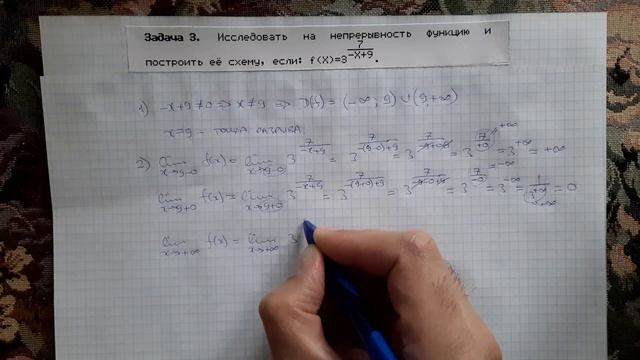 Задача 3. Исследовать на непрерывность функцию и
построить её схему, если: f(X)=3^(7/(-X+9)).
1) -x+9≠0 ⇒ x≠9 ⇒ D(f) = (-∞; 9) ∪ (9; +∞)
x=9 - точка разрыва
2) lim x→9-0 f(x) = lim x→9-0 3^(7/(-x+9)) = 3^(7/(-(9-0)+9)) = 3^(7/(-9+0+9)) = 3^(7/+0) = 3^(+∞) = +∞
lim x→9+0 f(x) = lim x→9+0 3^(7/(-x+9)) = 3^(7/(-(9+0)+9)) = 3^(7/(-9-0+9)) = 3^(7/-0) = 3^(-∞) = 1/3^(+∞) = 0
lim x→+∞ f(x) = lim x→+∞ 3